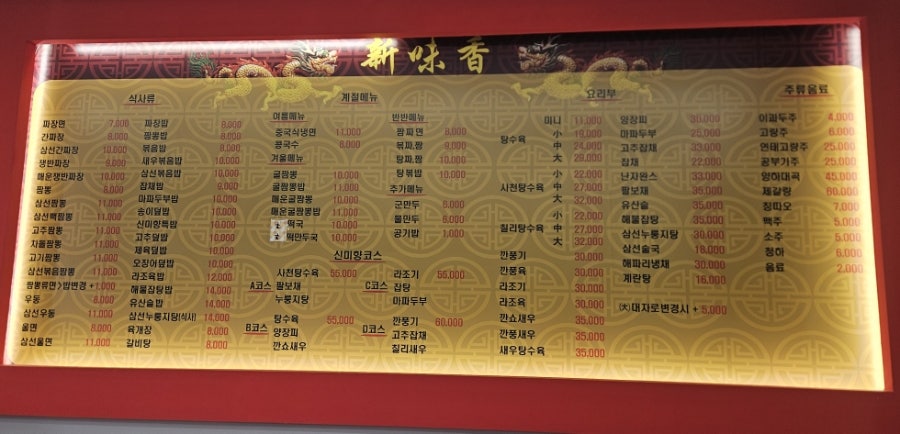 新味香
식사류
짜장면 7,000
간짜장 8,000
삼선간짜장 10,000
쟁반짜장 10,000
매운쟁반짜장 10,000
짬뽕 8,000
삼선짬뽕 11,000
삼선백짬뽕 11,000
고추짬뽕 11,000
차돌짬뽕 11,000
고기짬뽕 11,000
삼선볶음짬뽕 11,000
짬뽕류면>밥변경 +1,000
우동 8,000
삼선우동 11,000
울면 8,000
삼선울면 11,000
짜장밥 8,000
짬뽕밥 9,000
볶음밥 8,000
새우볶음밥 10,000
삼선볶음밥 11,000
잡채밥 9,000
마파두부밥 10,000
송이덮밥 10,000
신미향특밥 10,000
고추덮밥 10,000
제육덮밥 10,000
오징어덮밥 10,000
라조육밥 12,000
해물잡탕밥 14,000
유산슬밥 14,000
삼선누룽지탕(식사) 14,000
육개장 8,000
갈비탕 8,000
계절메뉴
여름메뉴
중국식냉면 11,000
콩국수 8,000
겨울메뉴
굴짬뽕 10,000
굴짬뽕밥 11,000
매운굴짬뽕 10,000
매운굴짬뽕밥 11,000
떡국 10,000
떡만두국 10,000
반반메뉴
짬짜면 8,000
볶짜,짬 9,000
탕짜,짬 9,000
탕볶밥 9,000
추가메뉴
군만두 6,000
물만두 6,000
공기밥 1,000
신미향코스
A코스
사천탕수육 55,000
팔보채
누룽지탕
B코스
탕수육 55,000
양장피
깐쇼새우
C코스
라조기 55,000
잡탕
마파두부
D코스
깐풍기 60,000
고추잡채
칠리새우
요리부
탕수육
미니 11,000
小 19,000
中 24,000
大 29,000
사천탕수육
小 22,000
中 27,000
大 32,000
칠리탕수육
小 22,000
中 27,000
大 32,000
깐풍기 30,000
깐풍육 30,000
라조기 30,000
라조육 30,000
깐쇼새우 35,000
깐풍새우 35,000
새우탕수육 35,000
양장피 30,000
마파두부 25,000
고추잡채 33,000
잡채 22,000
난자완스 33,000
팔보채 35,000
유산슬 35,000
해물잡탕 35,000
삼선누룽지탕 30,000
삼선술국 18,000
해파리냉채 30,000
계란탕 16,000
(大)대자로변경시 + 5,000
주류음료
이과두주 4,000
고량주 6,000
연태고량주 25,000
공부가주 25,000
양하대곡 45,000
제갈량 60,000
칭따오 7,000
맥주 5,000
소주 5,000
청하 6,000
음료 2,000